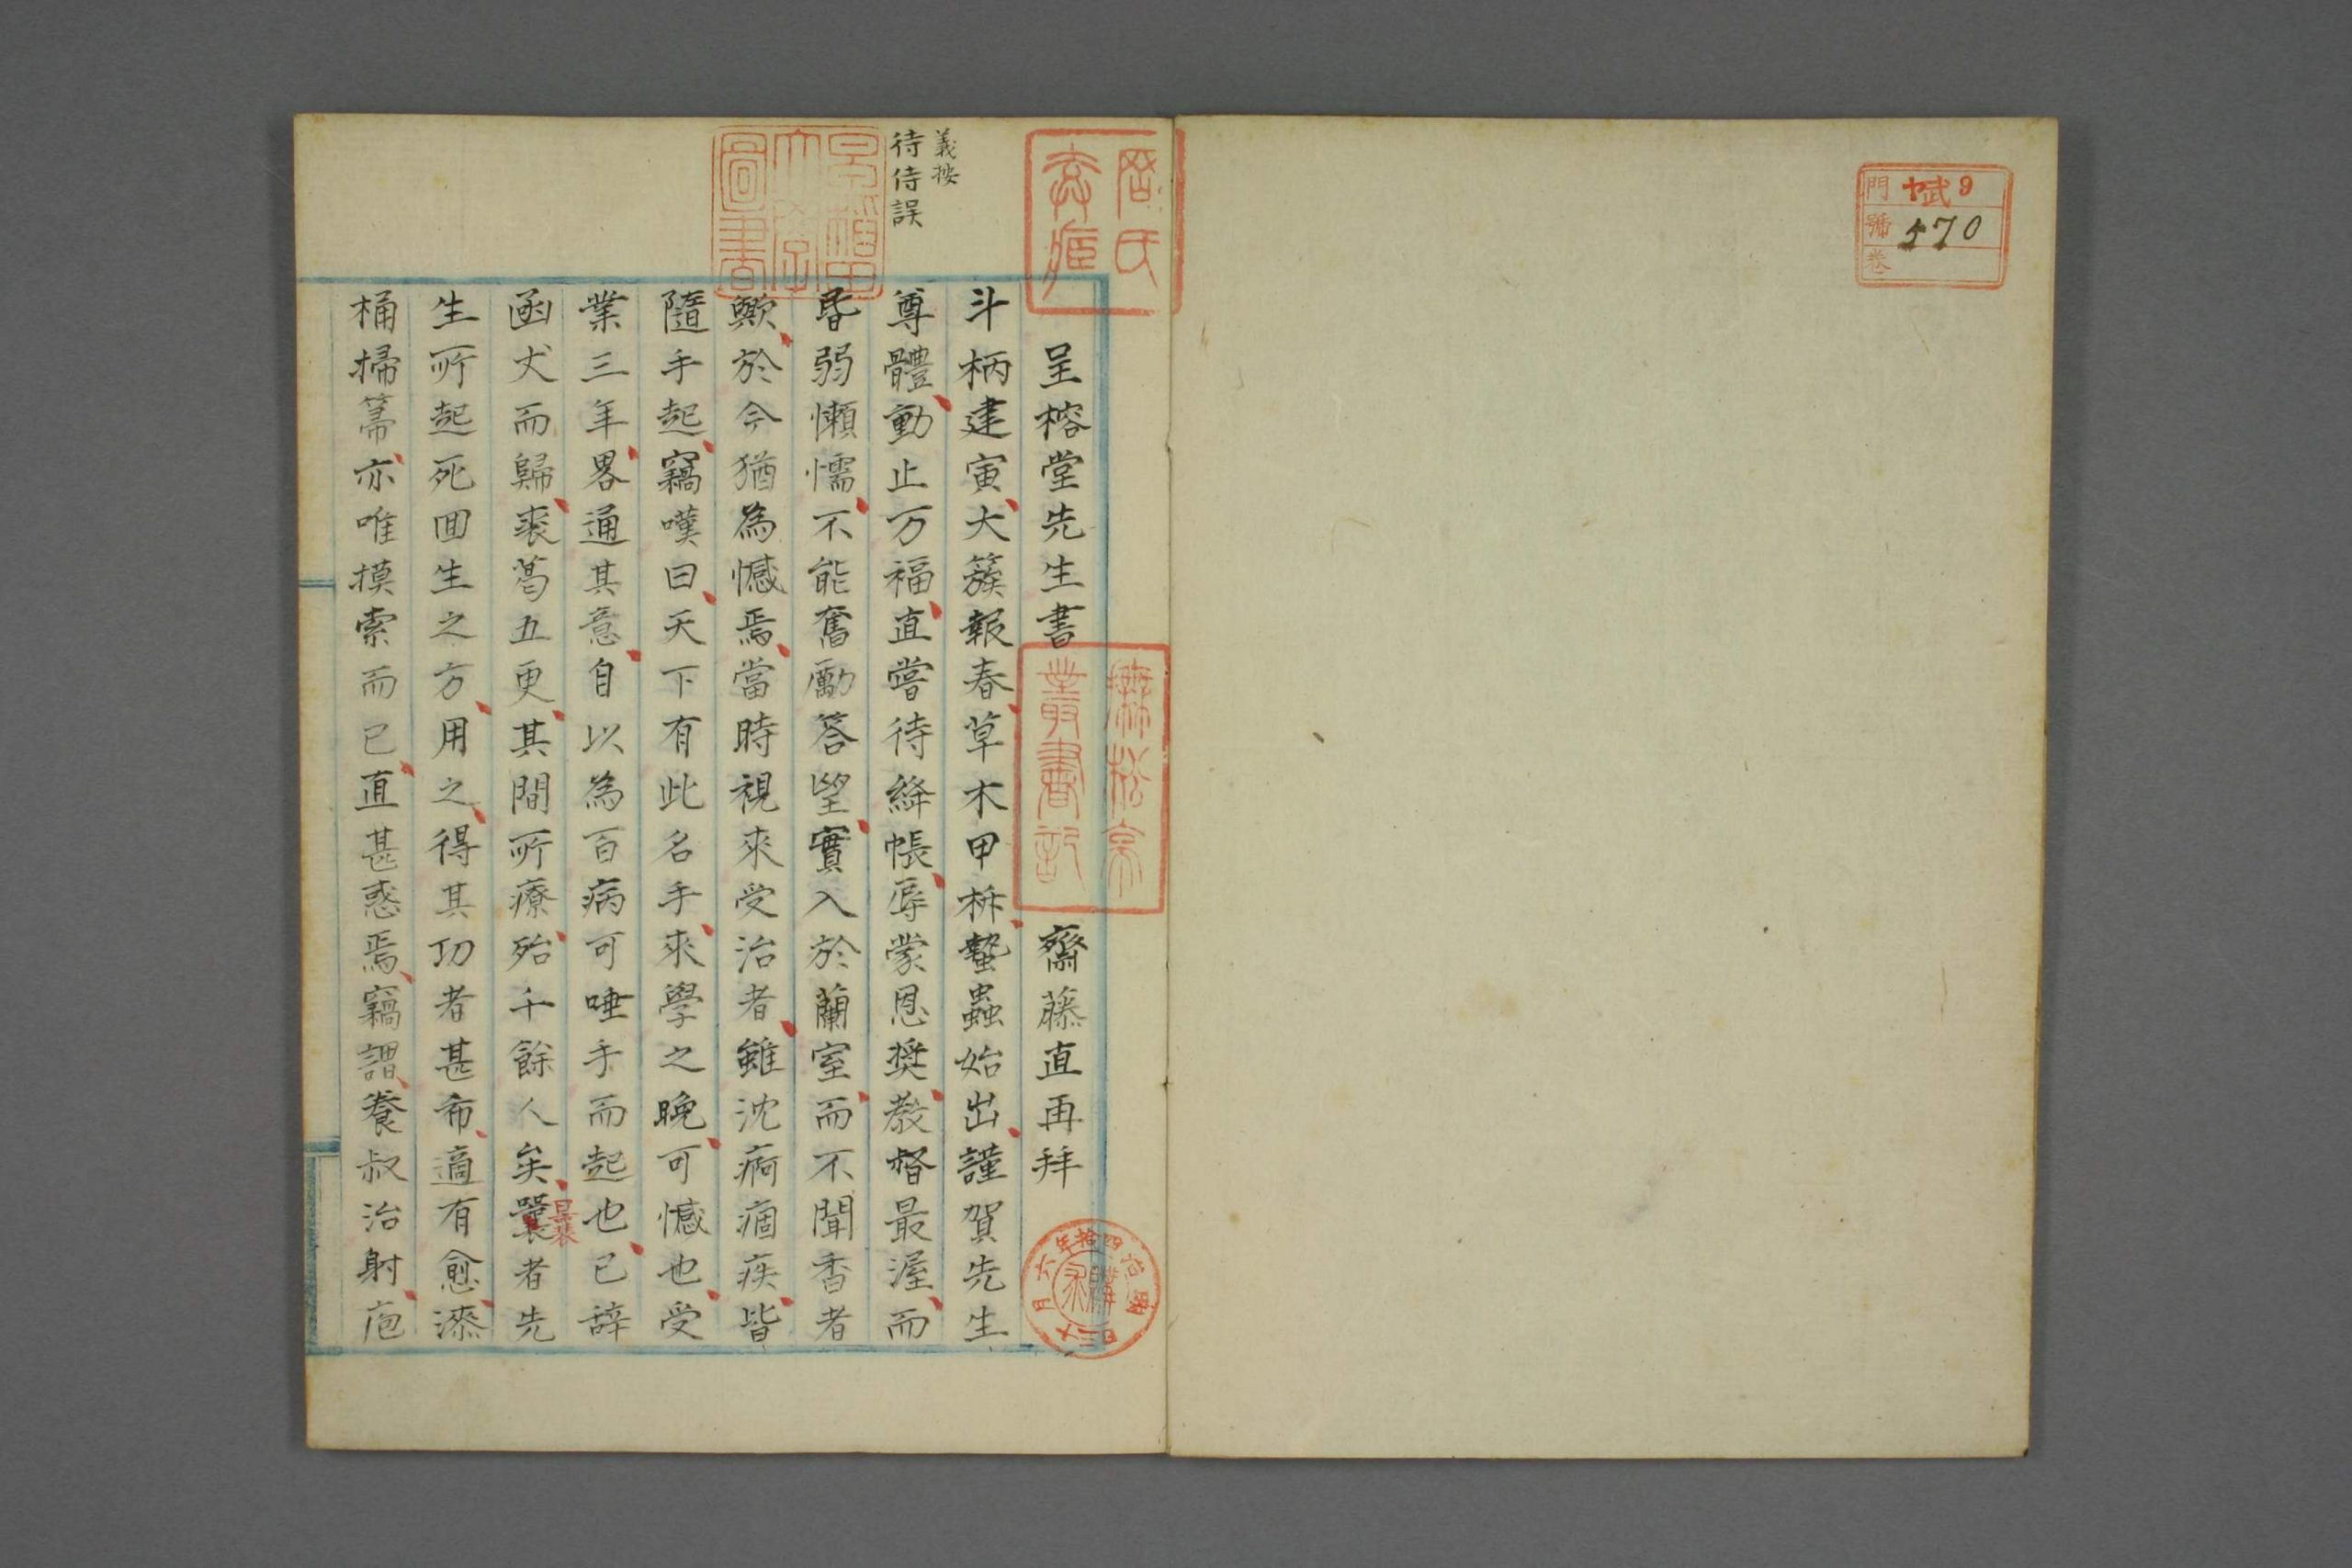 門 ヤ貳9
號 570
卷
義按
待侍誤
呈榕堂先生書 齋藤直再拜
斗柄建寅大簇報春草木甲柝蟄蟲始出謹賀先生
尊體動止万福直嘗待絳帳辱蒙恩奬教督最渥而
昏弱懶懦不能奮勵答望實入於蘭室而不聞香者
歟於今猶為憾焉當時視來受治者雖沈痾痼疾皆
隨手起竊嘆曰天下有此名手來學之晚可憾也受
業三年畧通其意自以為百病可唾手而起也已辞
函丈而歸裘葛五更其間所療殆千餘人矣曩者先
生所起死回生之方用之得其功者甚希適有愈漆
桶掃箒亦唯摸索而已直甚惑焉竊謂養叔治射庖
曩
早稻田大學圖書
明治四拾年六月
購求